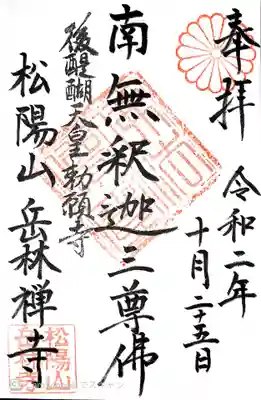 奉拝
令和二年
十月二十五日
南無釈迦三尊佛
後醍醐天皇勅願寺
松陽山 岳林禅寺
松陽山
岳林寺